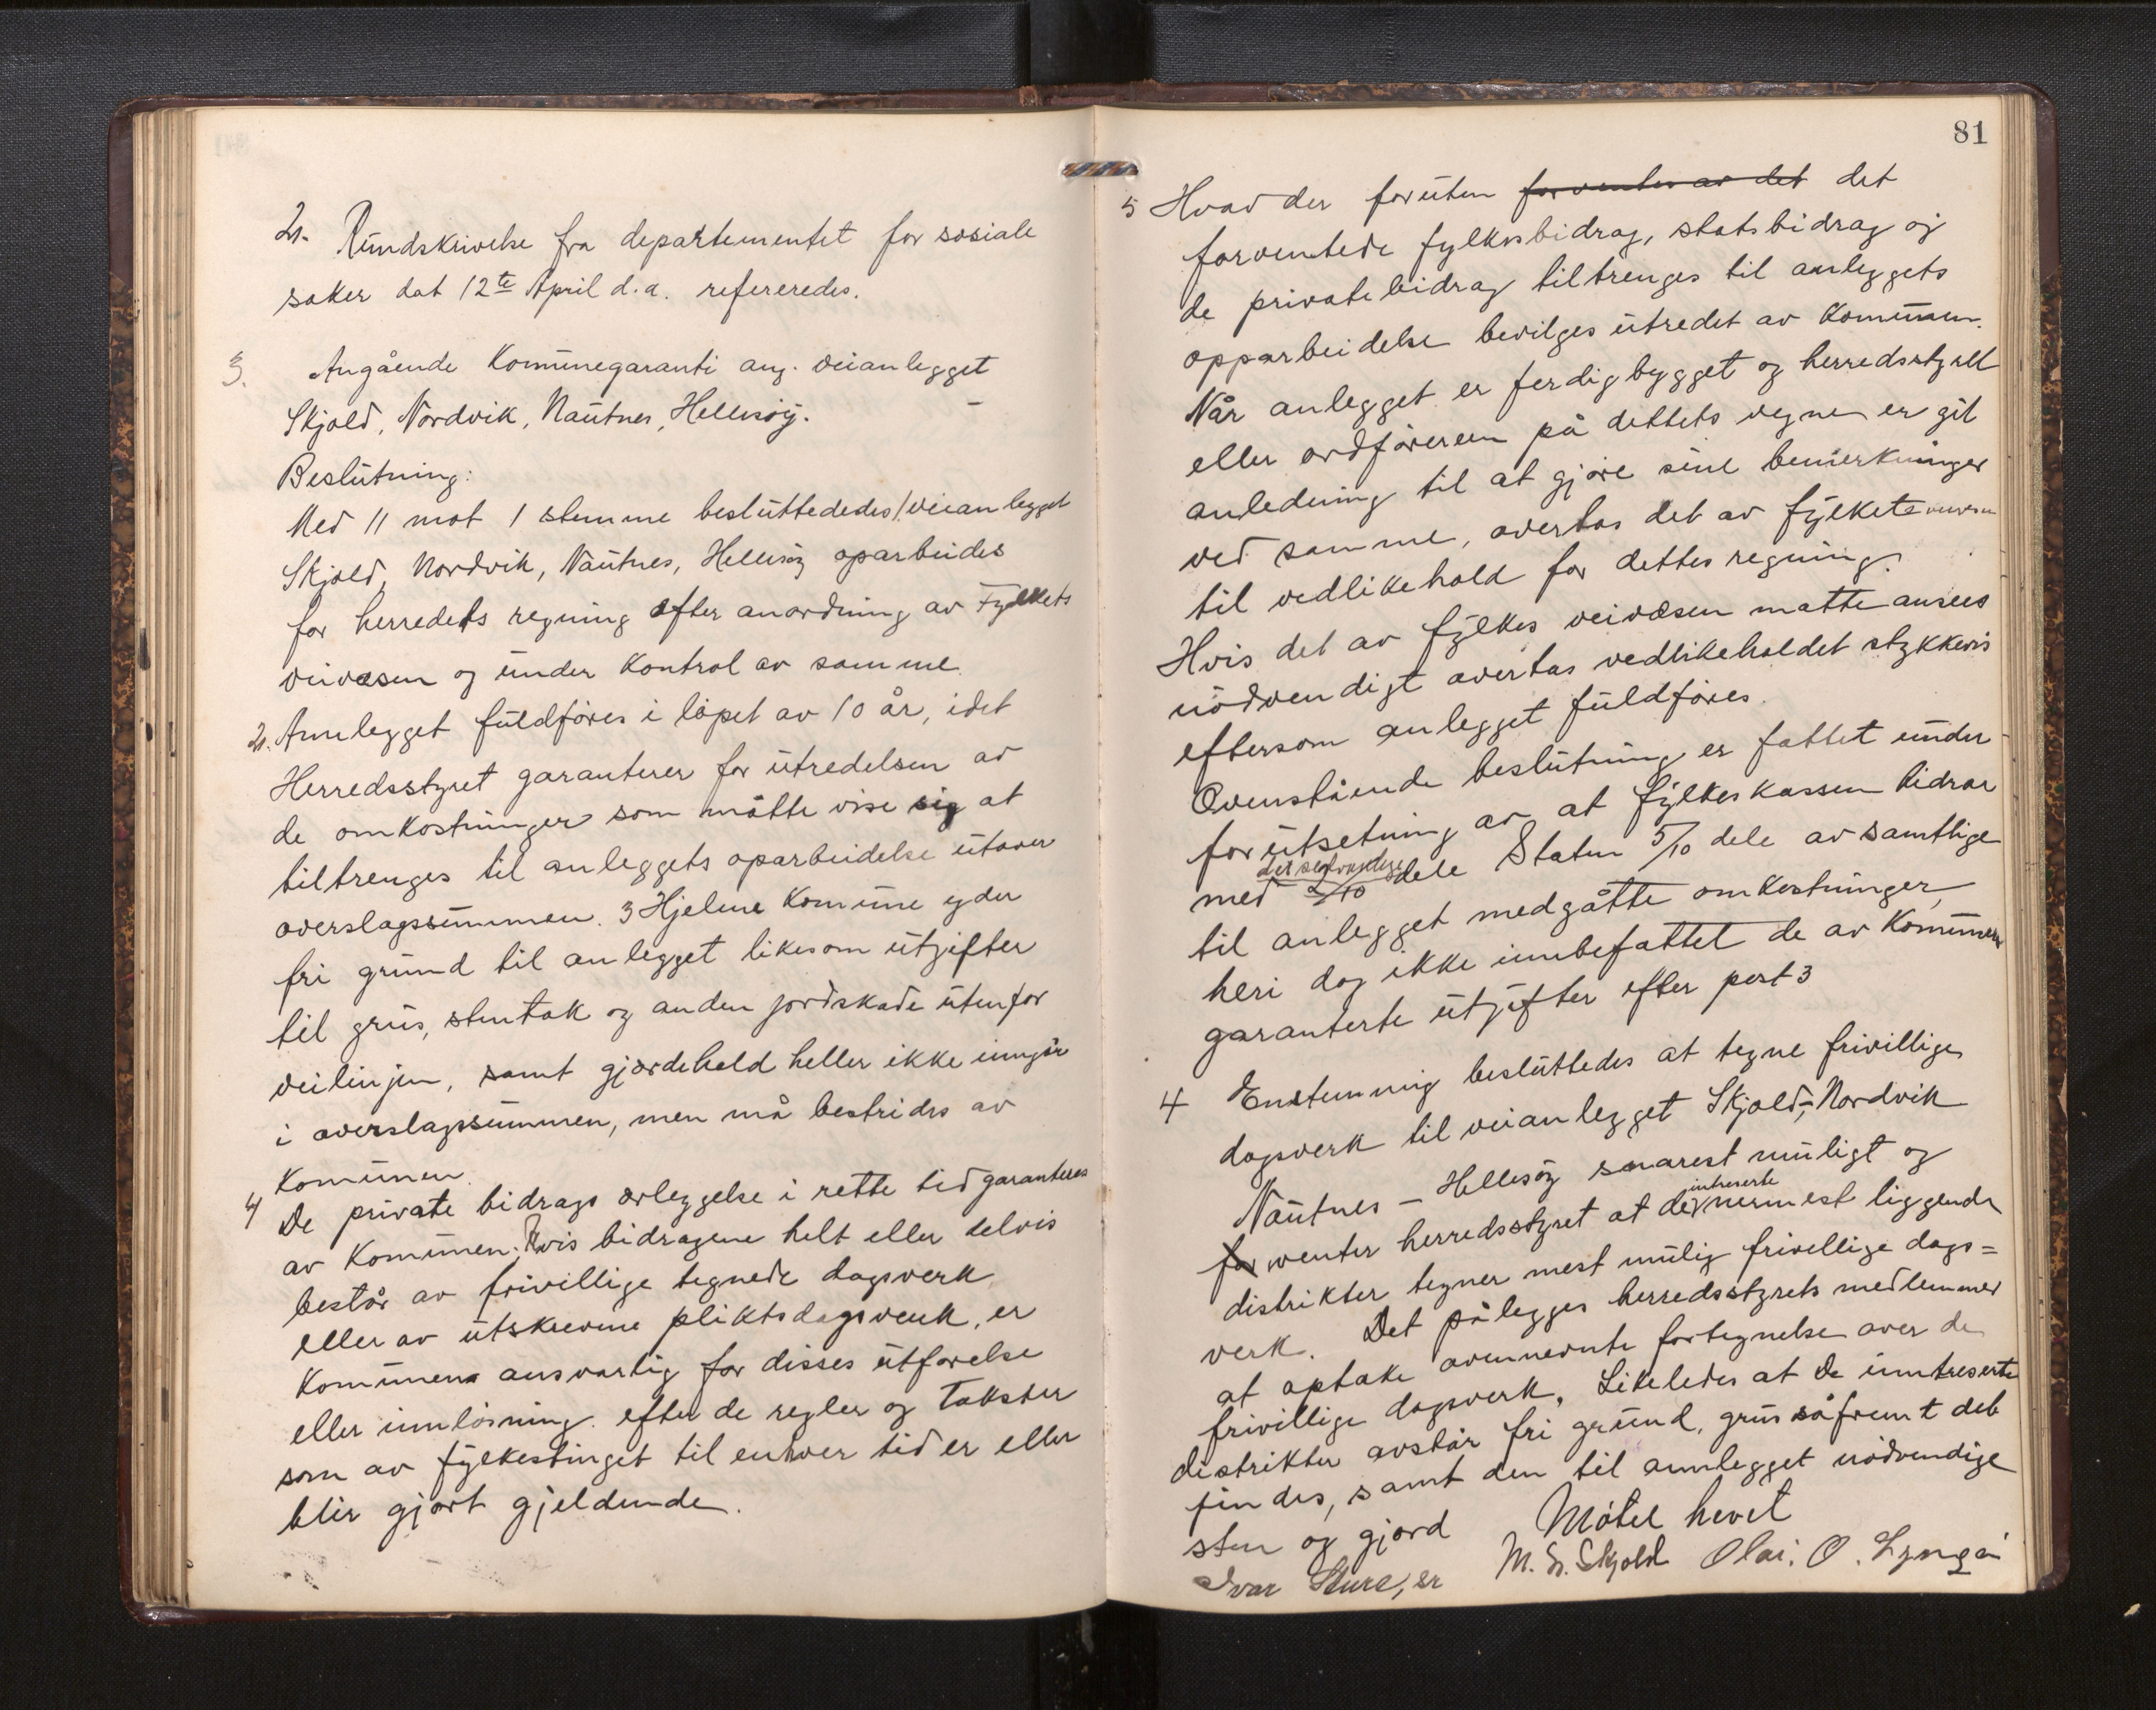 2. Rundskrivelse fra departementet for sosiale
saker dat 12te April d.a. refereredes.
3. Angående Komunegaranti ang. veianlegget
Skjold, Nordvik, Nautnes, Hellesøy.
Beslutning:
Med 11 mot 1 stemme besluttededes 1. veianlegget
Skjold, Nordvik, Nautnes, Hellesøy oparbeides
for herredets regning efter anordning av Fylkets
veivæsen og under Kontrol av samme.
2. Annlegget fuldføres i løpet av 10 år, idet
Herredsstyret garanterer for utredelsen av
de omkostninger som måtte vise sig at
tiltrenges til anleggets oparbeidelse utover
overslagssummen. 3 Hjelme Komune yder
fri grund til anlegget likesom utgifter
til grus, stentak og anden jordskade utenfor
veilinjen, samt gjærdehold heller ikke inngår
i overslagssummen, men må bestrides av
Komunen.
4 De private bidrags erleggelse i rette tid garanteres
av Komunen. Hvis bidragene helt eller delvis
består av frivillige tegnede dagsverk
eller av utskrevene pliktsdagsverk, er
Komunen ansvarlig for disses utførelse
eller innløsning. efter de regler og Takster
som av fylkestinget til enhver tid er eller
blir gjort gjeldende.
81
5 Hvad der foruten forventes av det det
forventede fylkesbidrag, statsbidrag og
de private bidrag tiltrenges til anleggets
opparbeidelse bevilges utredet av Komunen.
Når anlegget er ferdigbygget og herredsstyret
eller ordføreren på dettets vegne er git
anledning til at gjøre sine bemerkninger
ved samme, overtas det av fylkets
til vedlikehold for dettes regning.
Hvis det av fylkes veivæsen matte ansees
nødvendigt overtas vedlikeholdet stykkevis
eftersom anlegget fuldføres.
Ovenstående beslutning er fattet under
forutsetning av at fylkeskassen bidrar
med 2/10 dele Staten 5/10 dele av samtlige
til anlegget medgåtte omkostninger,
heri dog ikke innbefattet de av Komunen
garanterte utgifter efter post 3
4 Enstemmig besluttedes at tegne frivillige
dagsverk til veianlegget Skjold, - Nordvik
Nautnes - Hellesøy snarest muligt og
intreserte
for venter herredsstyret at de nermest liggende
distrikter tegner mest mulig frivellige dags=
verk. Det pålegges herredsstyrets medlemmer
at optake ovennevnte fortegnelse over de
frivillige dagsverk. Likeledes at de inntreserte
distrikter avstår fri grund, grus såfremt det
findes, samt den til annlegget nødvendige
sten og gjord Møtet hevet
Ivar Sture, er M. N. Skjold Olai. O. Lyngå